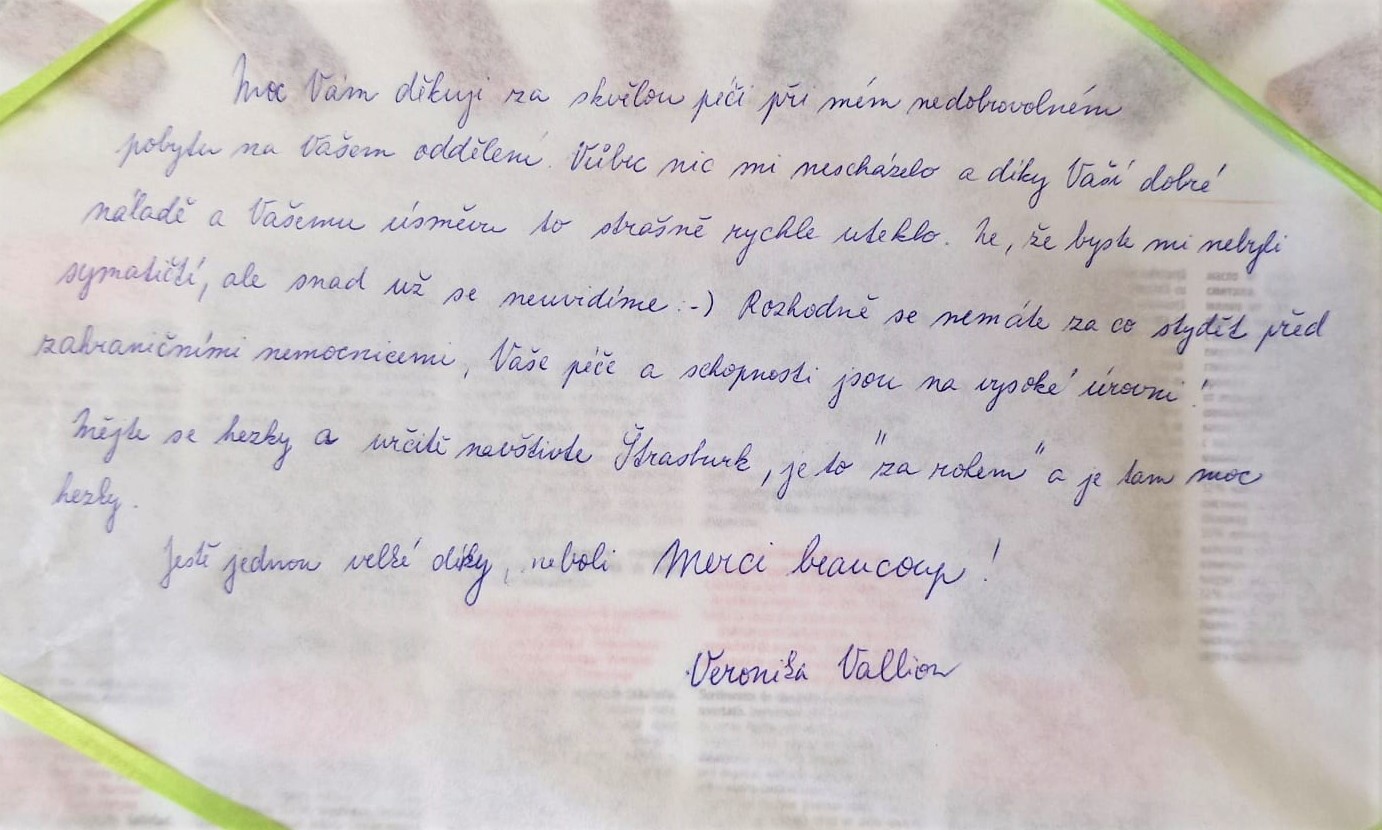 Moc Vám děkuji za skvělou péči při mém nedobrovolném
pobytu na Vašem oddělení. Vůbec nic mi nescházelo a díky Vaší dobré
náladě a Vašemu úsměvu to strašně rychle uteklo. Ne, že byste mi nebyli
symatičtí, ale snad už se neuvidíme :-) Rozhodně se nemáte za co stydět před
zahraničními nemocnicemi, Vaše péče a schopnosti jsou na vysoké úrovni!
Mějte se hezky a určitě navštivte Štrasburk, je to "za rohem" a je tam moc
hezky.
Jestě jednou velké díky, neboli Merci beaucoup!
Veronika Vallion